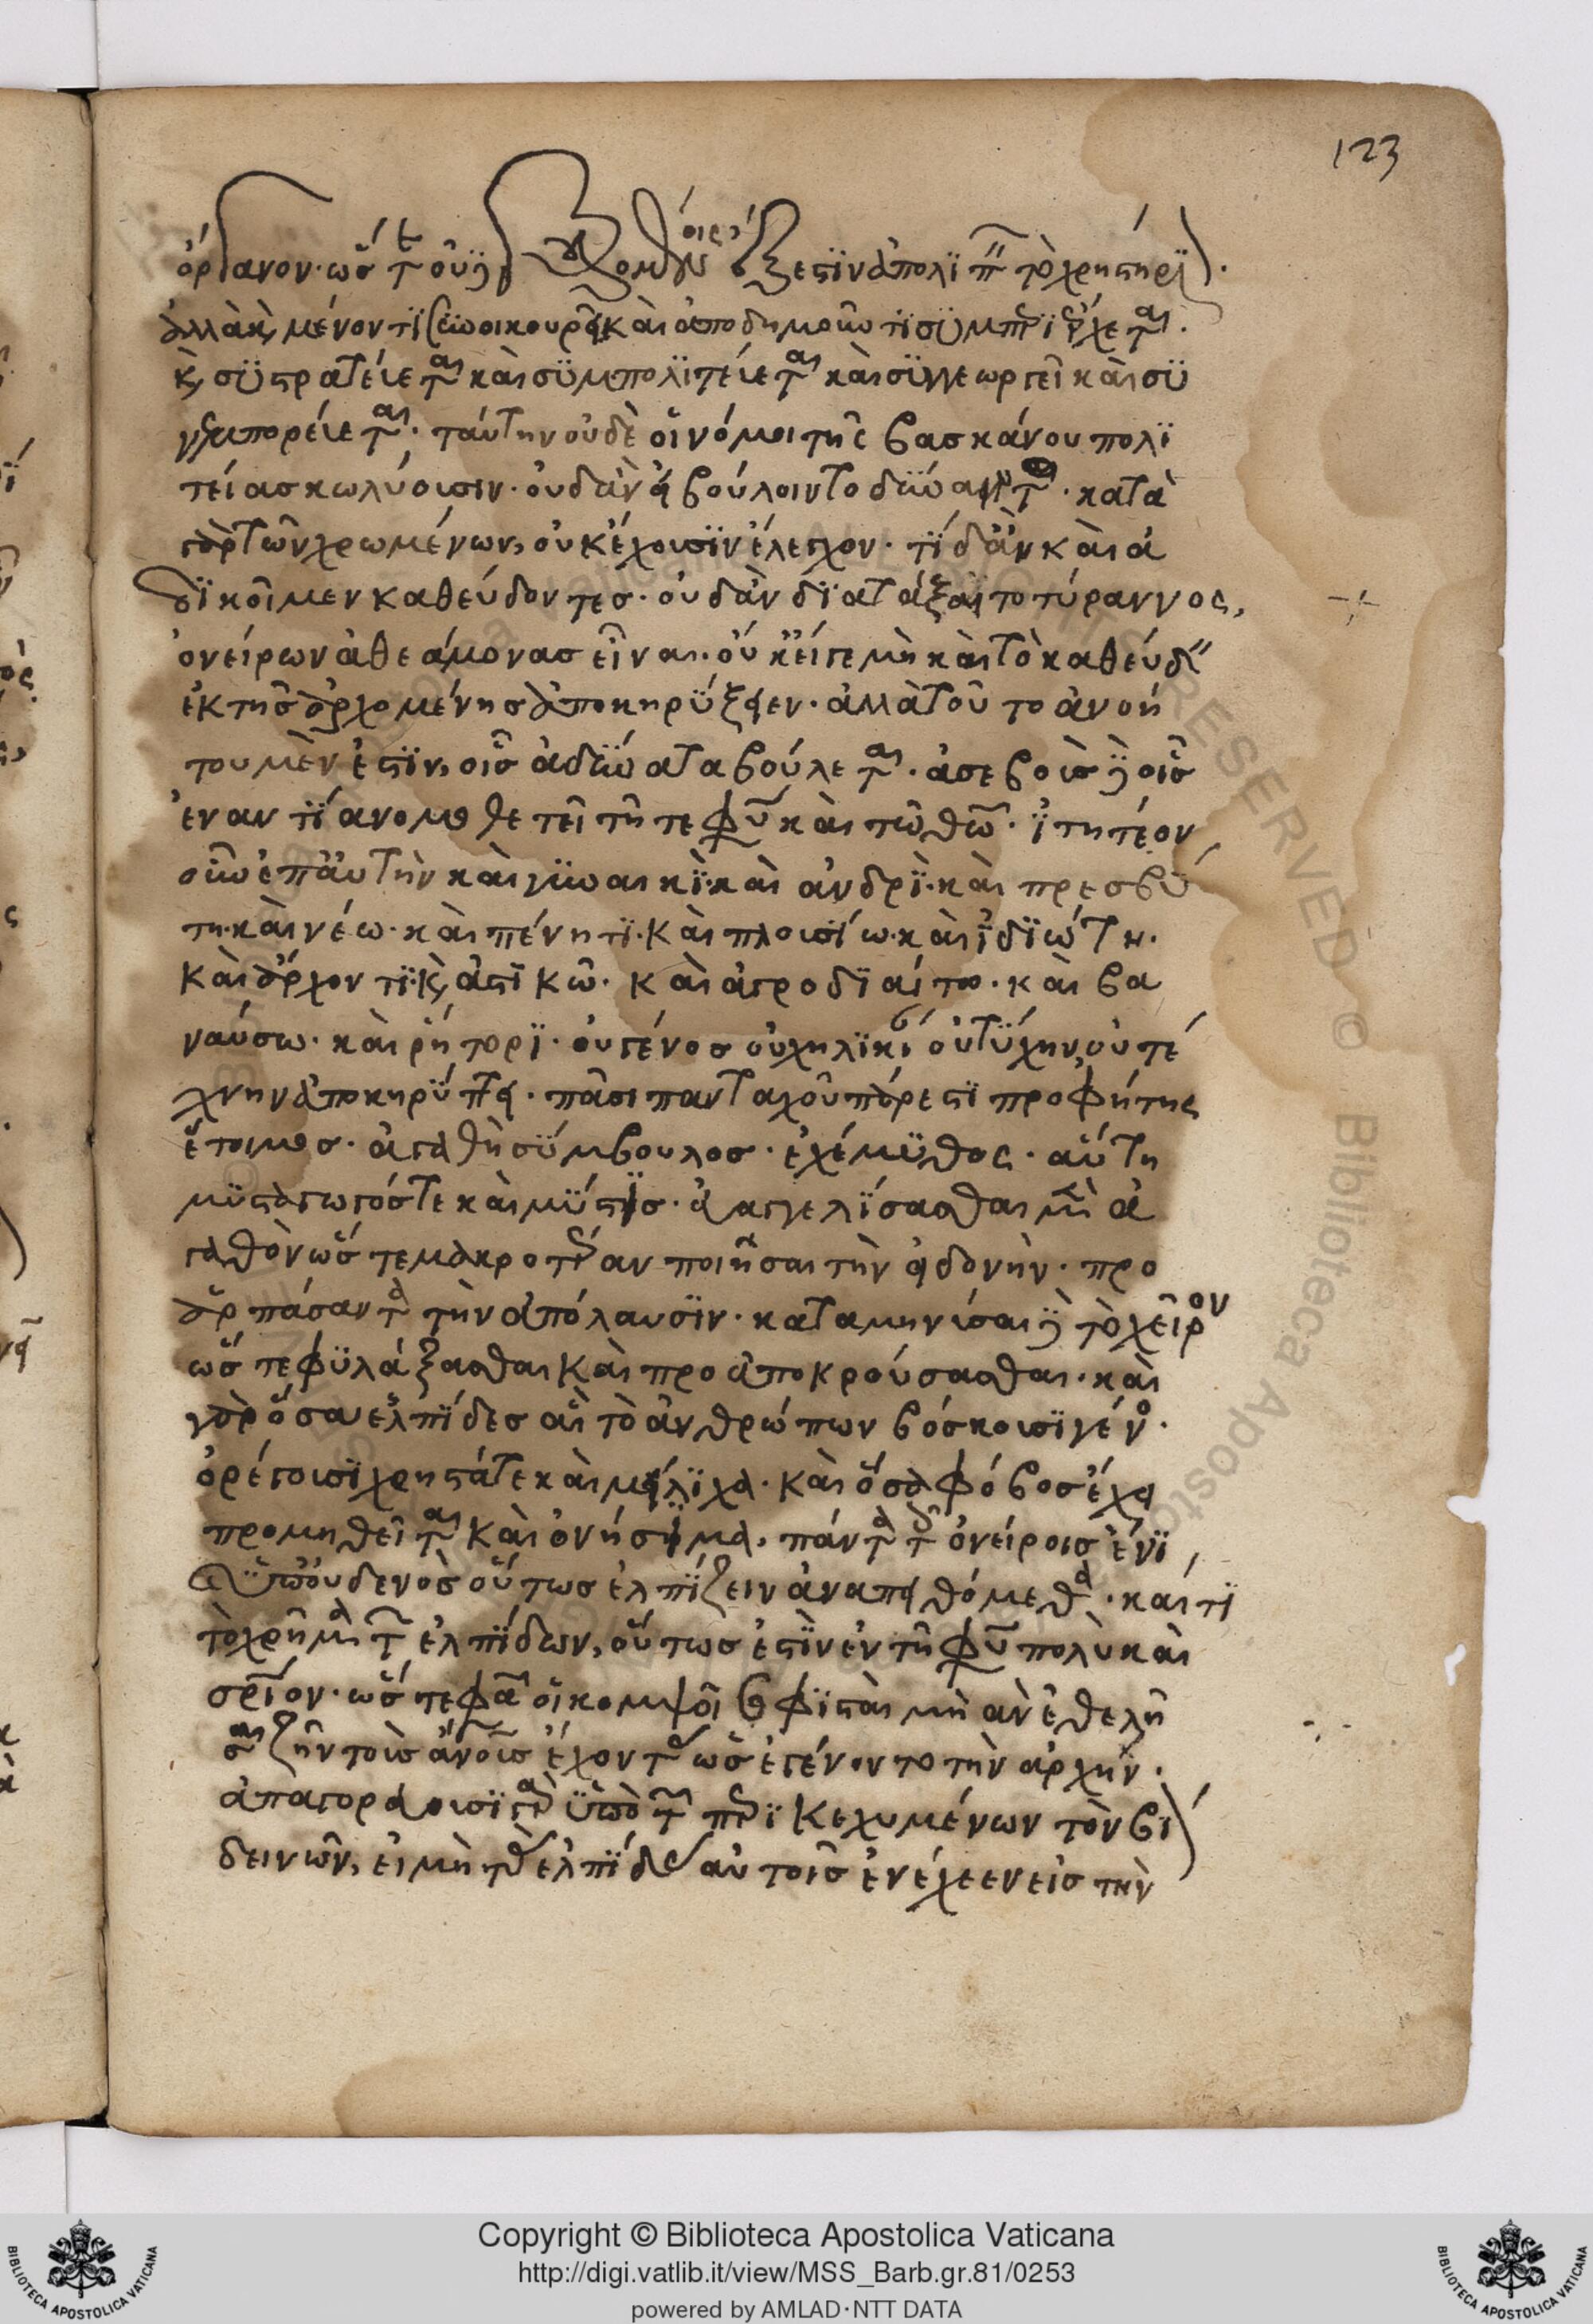 123
ὄργανον· ὥστε τοῦ γε βουλομένοις ἔξεστιν ἀπολιπεῖν τὸ χρηστήριον.
ἀλλὰ καὶ μένοντι συνοικουρεῖ καὶ ἀποδημοῦντι συμπεριέρχεται.
καὶ συστρατεύεται καὶ συμπολιτεύεται καὶ συγγεωργεῖ καὶ συ
νεμπορεύεται. ταύτην οὐδὲ οἱ νόμοι τῆς βασκάνου πολι
τείας κωλύουσιν· οὐδ' ἂν εἰ βούλοιντο δύναιντο· κατὰ
γὰρ τῶν χρωμένων, οὐκ ἔχουσιν ἔλεγχον· τί δ' ἂν καὶ ἀ
δικοῖμεν καθεύδοντες· οὐδ' ἂν διατάξαιτο τύραννος,
ὀνείρων ἀθεάμονας εἶναι· οὔκ εἴ γε μὴ καὶ τὸ καθεύδειν
ἐκ τῆς ἀρχομένης ἀποκηρύξειεν· ἀλλὰ τοῦτο ἀνοή
του μέν ἐστιν, οἷς ἀδύνατα βούλεται· ἀσεβοῖς δὲ οἷς
ἐναντία νομοθετεῖ τῆ τε φύσει καὶ τῷ θεῷ· ἰτητέον
οὖν ἐπ' αὐτὴν καὶ γυναικὶ· καὶ ἀνδρὶ· καὶ πρεσβύ
τη· καὶ νέω· καὶ πένητι· καὶ πλουσίω· καὶ ἰδιώτη.
καὶ ἄρχοντι· καὶ ἀστικῶ· καὶ ἀγροδιαίτω· καὶ βα
ναύσω· καὶ ῥήτορι· οὐ γένος οὐχ ἡλικίαν οὐ τύχην, οὐ τέ
χνην ἀποκηρύττει· πᾶσι πανταχοῦ πάρεστι προφήτης
ἕτοιμος· ἀγαθὴ σύμβουλος· ἐχέμυθος· αὕτη
μυσταγωγός τε καὶ μύστις· εὐαγγελίσασθαι μὲν ἀ
γαθὸν ὥστε μακροτέραν ποιῆσαι τὴν ἡδονὴν· προ
αρπάσαντα τὴν ἀπόλαυσιν· καταμηνύσαι δὲ τὸ χεῖρον
ὥστε φυλάξασθαι καὶ προαποκρούσασθαι· καὶ
γὰρ ὅσα ἐλπίδες αἳ τὸ ἀνθρώπων βόσκουσι γένος·
ὀρέγουσι χρηστά τε καὶ μείλιχα· καὶ ὅσα φόβος ἔχει
προμηθεῖται καὶ ὀνήσιμα, πάντα τοῖς ὀνείροις ἔνι,
καὶ ὑπ' οὐδενὸς οὕτως ἐλπίζειν ἀναπειθόμεθα· καί τι
τὸ χρῆμα τῶν ἐλπίδων, οὕτως ἐστὶν ἐν τῆ φύσει πολὺ καὶ
σωτήριον· ὥστε φασὶν οἱ κομψοὶ σοφισταὶ μὴ ἂν ἐθελῆ
σαι ζῆν τοὺς ἀνθρώπους ἔχοντας ὡς ἐγένοντο τὴν ἀρχήν·
ἀπαγορεύουσι γὰρ ὑπὸ τῶν περικεχυμένων τὸν βίον
δεινῶν, εἰ μὴ τὰς ἐλπίδας αὐτοῖς ἐνέχεεν εἰς τὴν
Copyright © Biblioteca Apostolica Vaticana
http://digi.vatlib.it/view/MSS_Barb.gr.81/0253
powered by AMLAD·NTT DATA
BIBLIOTECA APOSTOLICA VATICANA
BIBLIOTECA APOSTOLICA VATICANA